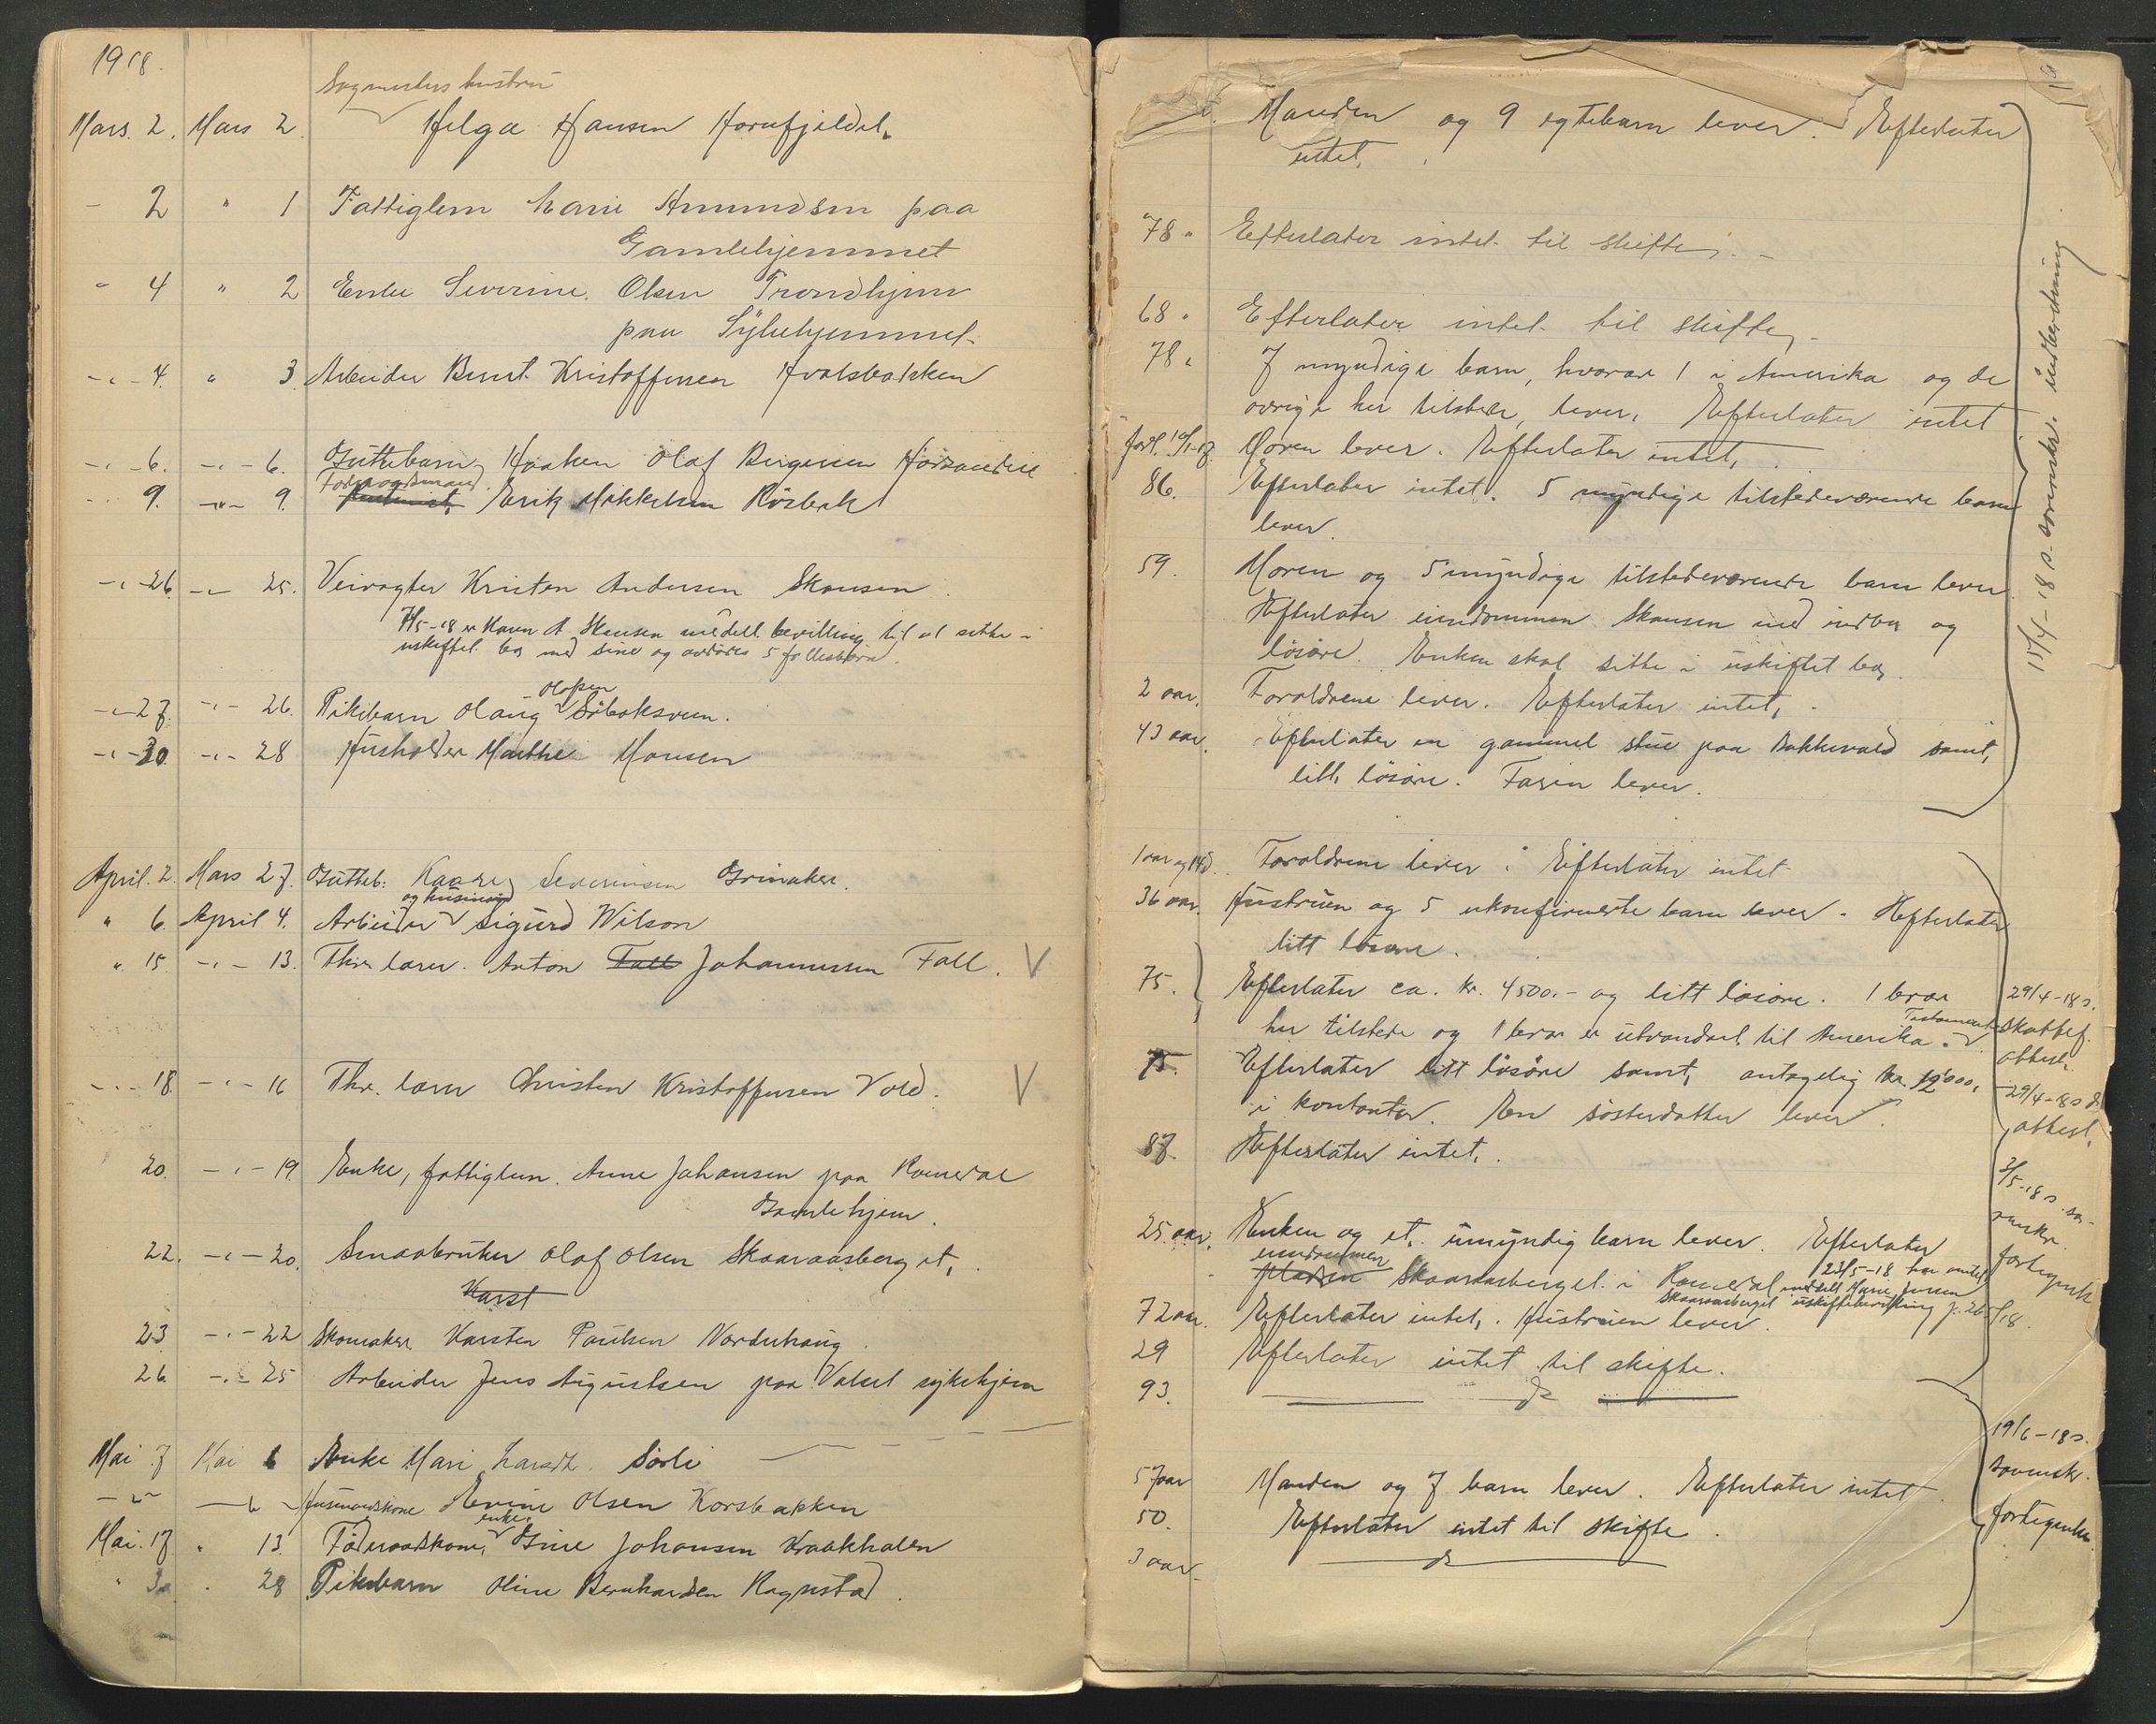 1918.
Sagmesters hustru
Mars. 2. Mars 2. Helga Hansen Hornfjeldet.
- 2 " 1 Fattiglem Marie Amundsen paa
Gamlehjemmet
" 4 " 2 Enke Severine Olsen Trondhjem
paa Sykehjemmet.
-"- 4. " 3. Arbeider Bernt Kristoffersen Hvalsbakken
-"- 6. -"- 6. Guttebarn Haaken Olaf Birgersen
Föderaadsmand
9. -"- 9. Erik Mikkelsen Rösbak
-"- 26. -"- 25. Veivogter Kristen Andersen Skansen.
7/5-18 er Karen A Skansen meddelt bevilling til at sitte i
uskiftet bo med sine og avdödes 5 fællesbörn.
Olsen
-"- 27. -"- 26. Pikebarn Olaug Söbaksveen.
-"- 30. -"- 28 Husholder Marthe Monsen
April. 2. Mars 27. Gutteb. Kaare Severinsen Grinaker.
og husmand
" 6. April 4. Arbeider Sigurd Wilson
" 15. -"- 13. Fhv. lærer. Anton Fall Johannessen Fall. V
-"- 18. -"- 16 Fhv. lærer Christen Kristoffersen Vold. V
20. -"- 19. Enke, fattiglem. Anne Johansen paa Romedal
Gamlehjem.
22. -"- 20. Smaabruker Olaf Olsen Skaaraasberget.
Karst
23 -"- 22 Skomaker Karsten Paulsen Vorduhaug.
26 -"- 25 Arbeider Jens Augustsen paa Valset sykehjem
Mai 7 Mai 6 Enke Mari Larsdt. Sörli
-"- -"- Husmandskone Evine Olsen Korsbakken
enke.
Mai. 17. " 13. Föderaadskone, Gine Johansen Kraakhalen
" 30. " 28 Pikebarn Oline Bernhardsen Ragnstad.
Manden og 9 egtebarn lever. Efterlater
intet.
78 " Efterlater intet til skifte.
68 " Efterlater intet til skifte.
78 " 7 myndige barn, hvorav 1 i Amerika og de
övrige her tilstede, lever. Efterlater intet
Moren lever. Efterlater intet.
86. Efterlater intet. 5 myndige tilstedeværende barn
lever.
59. Moren og 5 myndige tilstedeværende barn lever
Efterlater eiendommen Skansen med indbo og
lösöre. Enken skal sitte i uskiftet bo.
2 aar. Forældrene lever. Efterlater intet.
43 aar. Efterlater en gammel stue paa Bakkevald samt
litt lösöre. Faren lever.
15/4-18 s. sorenskr. indberetning
1 aar og 14 d. Forældrene lever. Efterlater intet
36 aar. Hustruen og 5 ukonfirmerte barn lever. Efterlater
litt lösöre.
75. Efterlater ca. kr. 4500.- og litt lösöre. 1 bror
her tilstede og 1 bror er utvandret til Amerika. Testamente
29/4-18 s.
skattef.
attest.
75. Efterlater litt lösöre samt antagelig kr. 12000.
i kontanter. En sösterdatter lever.
29/4-18 s d.
attest.
87. Efterlater intet.
25 aar. Enken og et umyndig barn lever. Efterlater
eiendommen
pladsen Skaaraasberget i Romedal
23/5-18 har meddelt Marie Jensen
Skaaraasberget uskiftebevilling
2/5-18 s. so-
renskr.
fortegnelse
72 aar. Efterlater intet. Hustruen lever.
29 Efterlater intet til skifte.
93. do
57 aar Manden og 7 barn lever. Efterlater intet.
50. Efterlater intet til skifte.
3 aar. do
19/6-18 s.
sorenskr.
fortegnelse